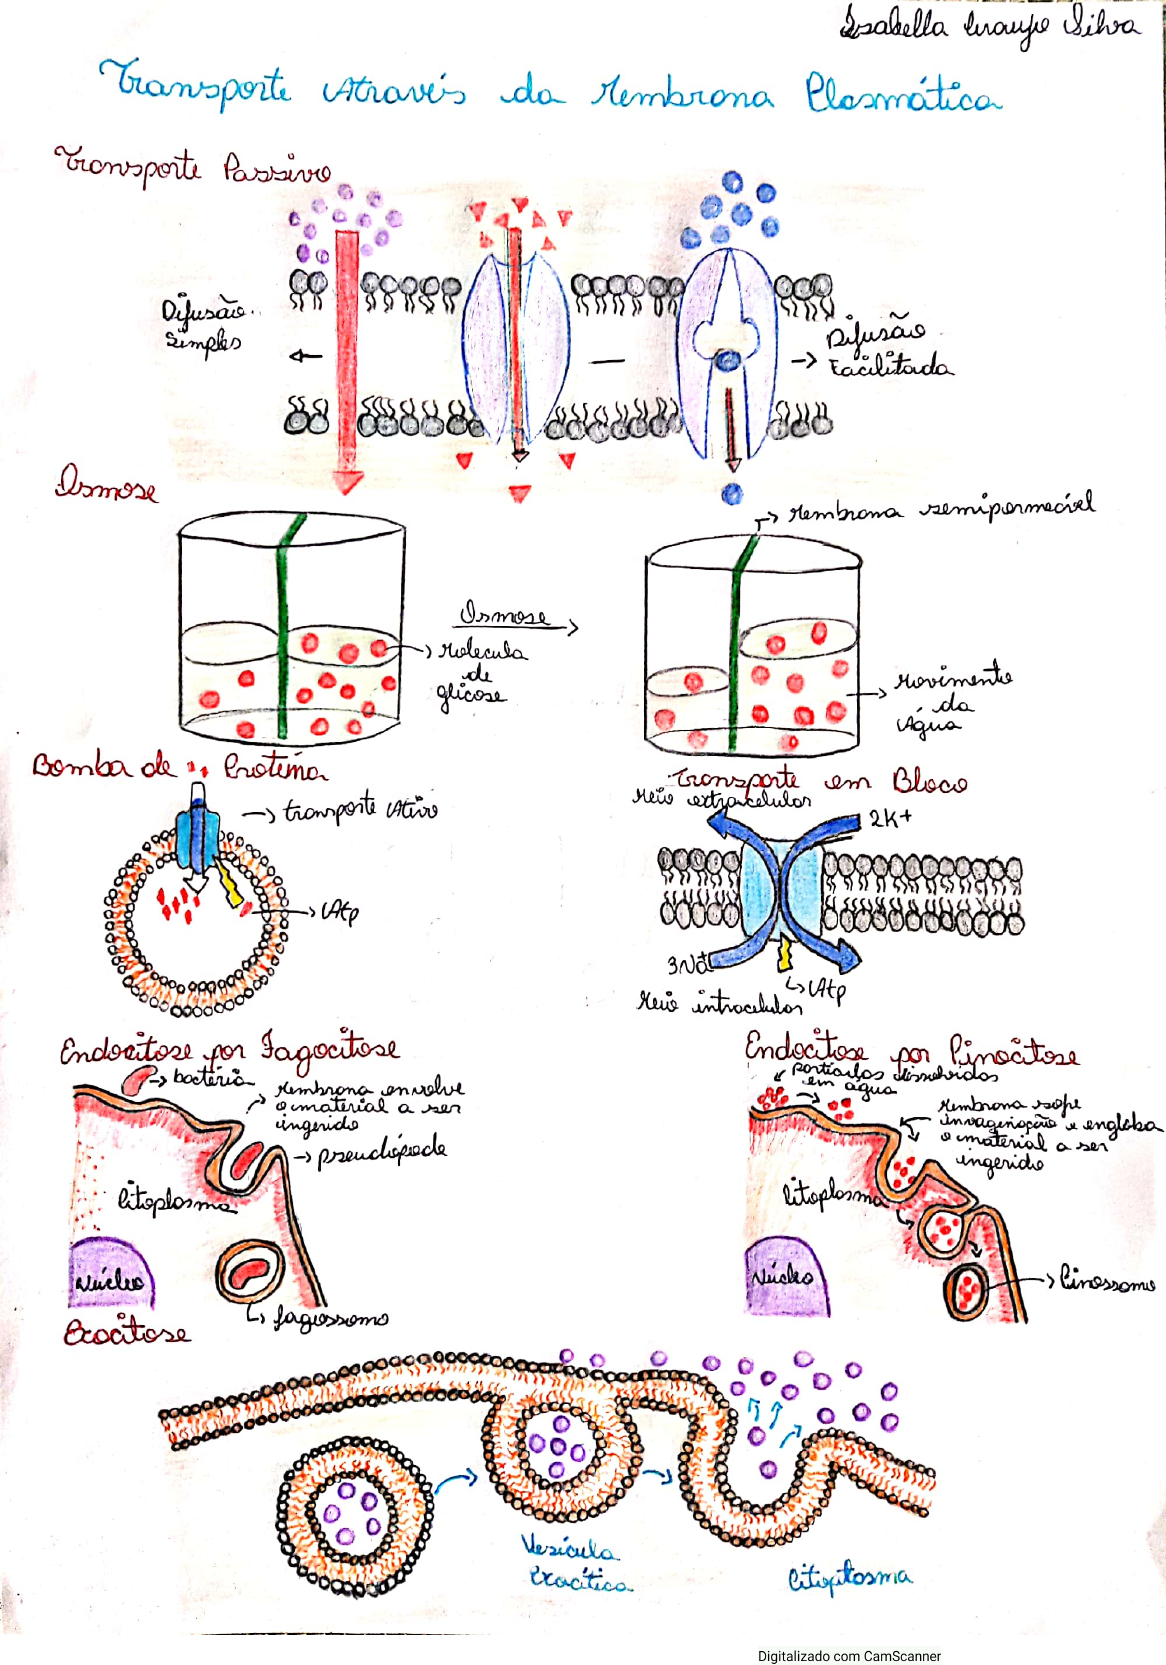 Isabella Araujo Silva
Transporte Através da Membrana Plasmática
Transporte Passivo
Difusão
Simples
Difusão
Facilitada
Osmose
Membrana semipermeável
Osmose
Molecula
de
glicose
Movimento
da
Água
Bomba de Proteína
transporte Ativo
Atp
Transporte em Bloco
Meio extracelular
2K+
3Na
Atp
Meio intracelular
Endocitose por Fagocitose
bactéria
Membrana envolve
o material a ser
ingerido
pseudópode
Citoplasma
Núcleo
fagossomo
Endocitose por Pinocitose
particulas dissolvidas
em água
Membrana sofre
invaginação e engloba
o material a ser
ingerido
Citoplasma
Núcleo
Pinossomo
Exocitose
Vesícula
Exocítica
Citoplasma
Digitalizado com CamScanner